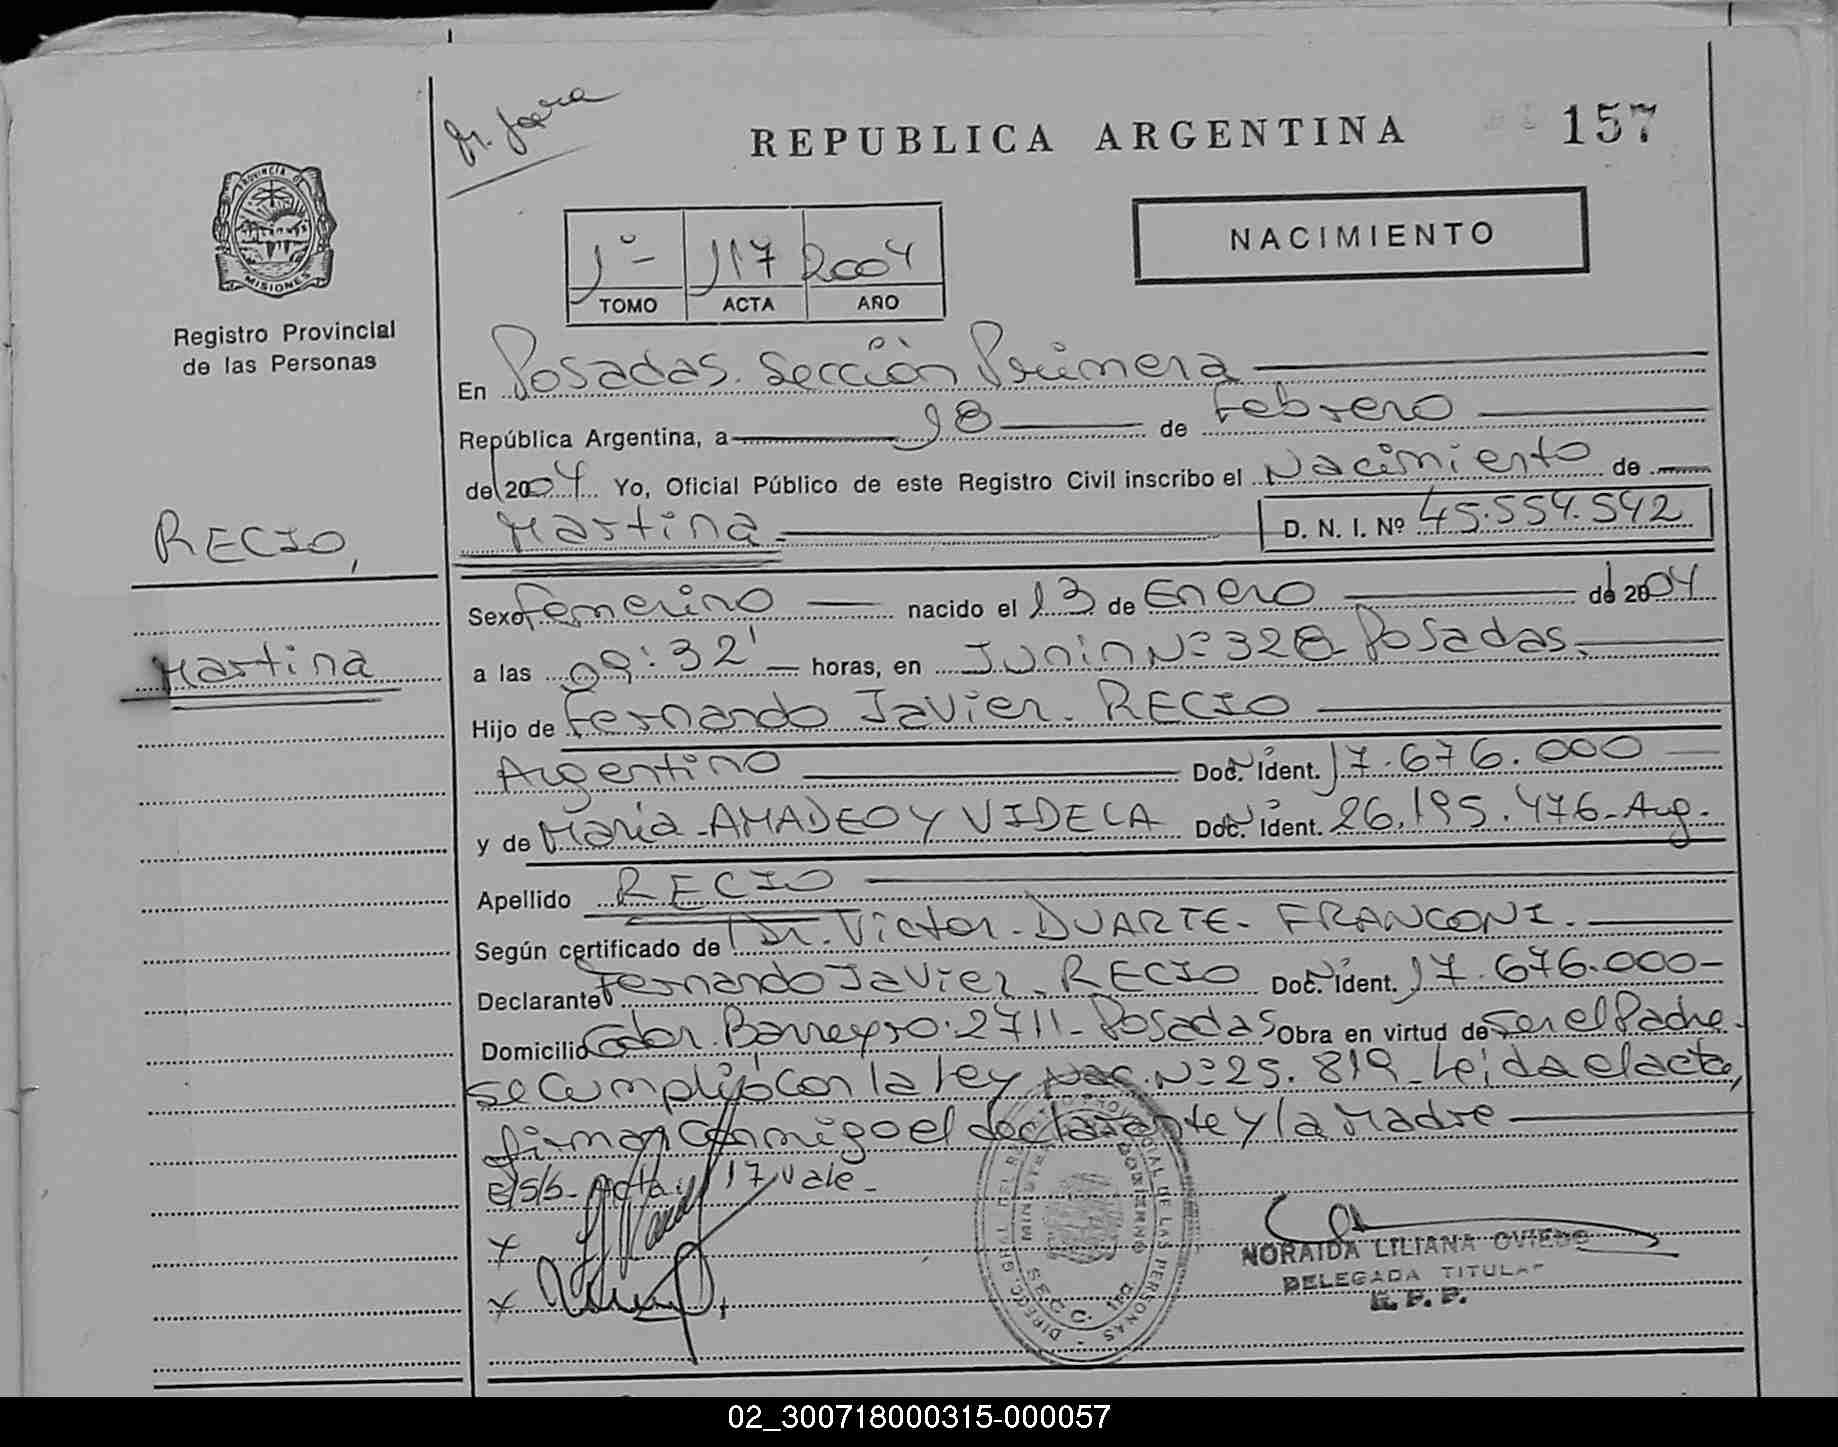 REPUBLICA ARGENTINA
157
PROVINCIA DE
MISIONES
Registro Provincial
de las Personas
NACIMIENTO
1º - 117 2004
TOMO ACTA AÑO
En Posadas. Sección Primera
República Argentina, a 18 de Febrero
de 2004 Yo, Oficial Público de este Registro Civil inscribo el Nacimiento de
Martina D. N. I. Nº 45.554.542
RECIO,
Martina
Sexo Femenino nacido el 13 de Enero de 2004
a las 09:32' horas, en Junin Nº 328 Posadas.
Hijo de Fernando Javier. RECIO
Argentino Doc. Nº Ident. 17.676.000
y de María AMADEO Y VIDELA Doc. Nº Ident. 26.195.476-Arg.
Apellido RECIO
Según certificado de Dr. Victor. DUARTE. FRANCONI.
Declarante Fernando Javier. RECIO Doc. Nº Ident. 17.676.000-
Domicilio Gdor. Barreyro. 2711- Posadas Obra en virtud de Ser el Padre.
se cumplió con la Ley Nac. Nº 25.819. Leida el acta,
firman conmigo el declarante y la Madre
E/S/S- Acta 117 Vale-
x
x
NORAIDA LILIANA OVIEDO
DELEGADA TITULAR
R. P. P.
02_300718000315-000057